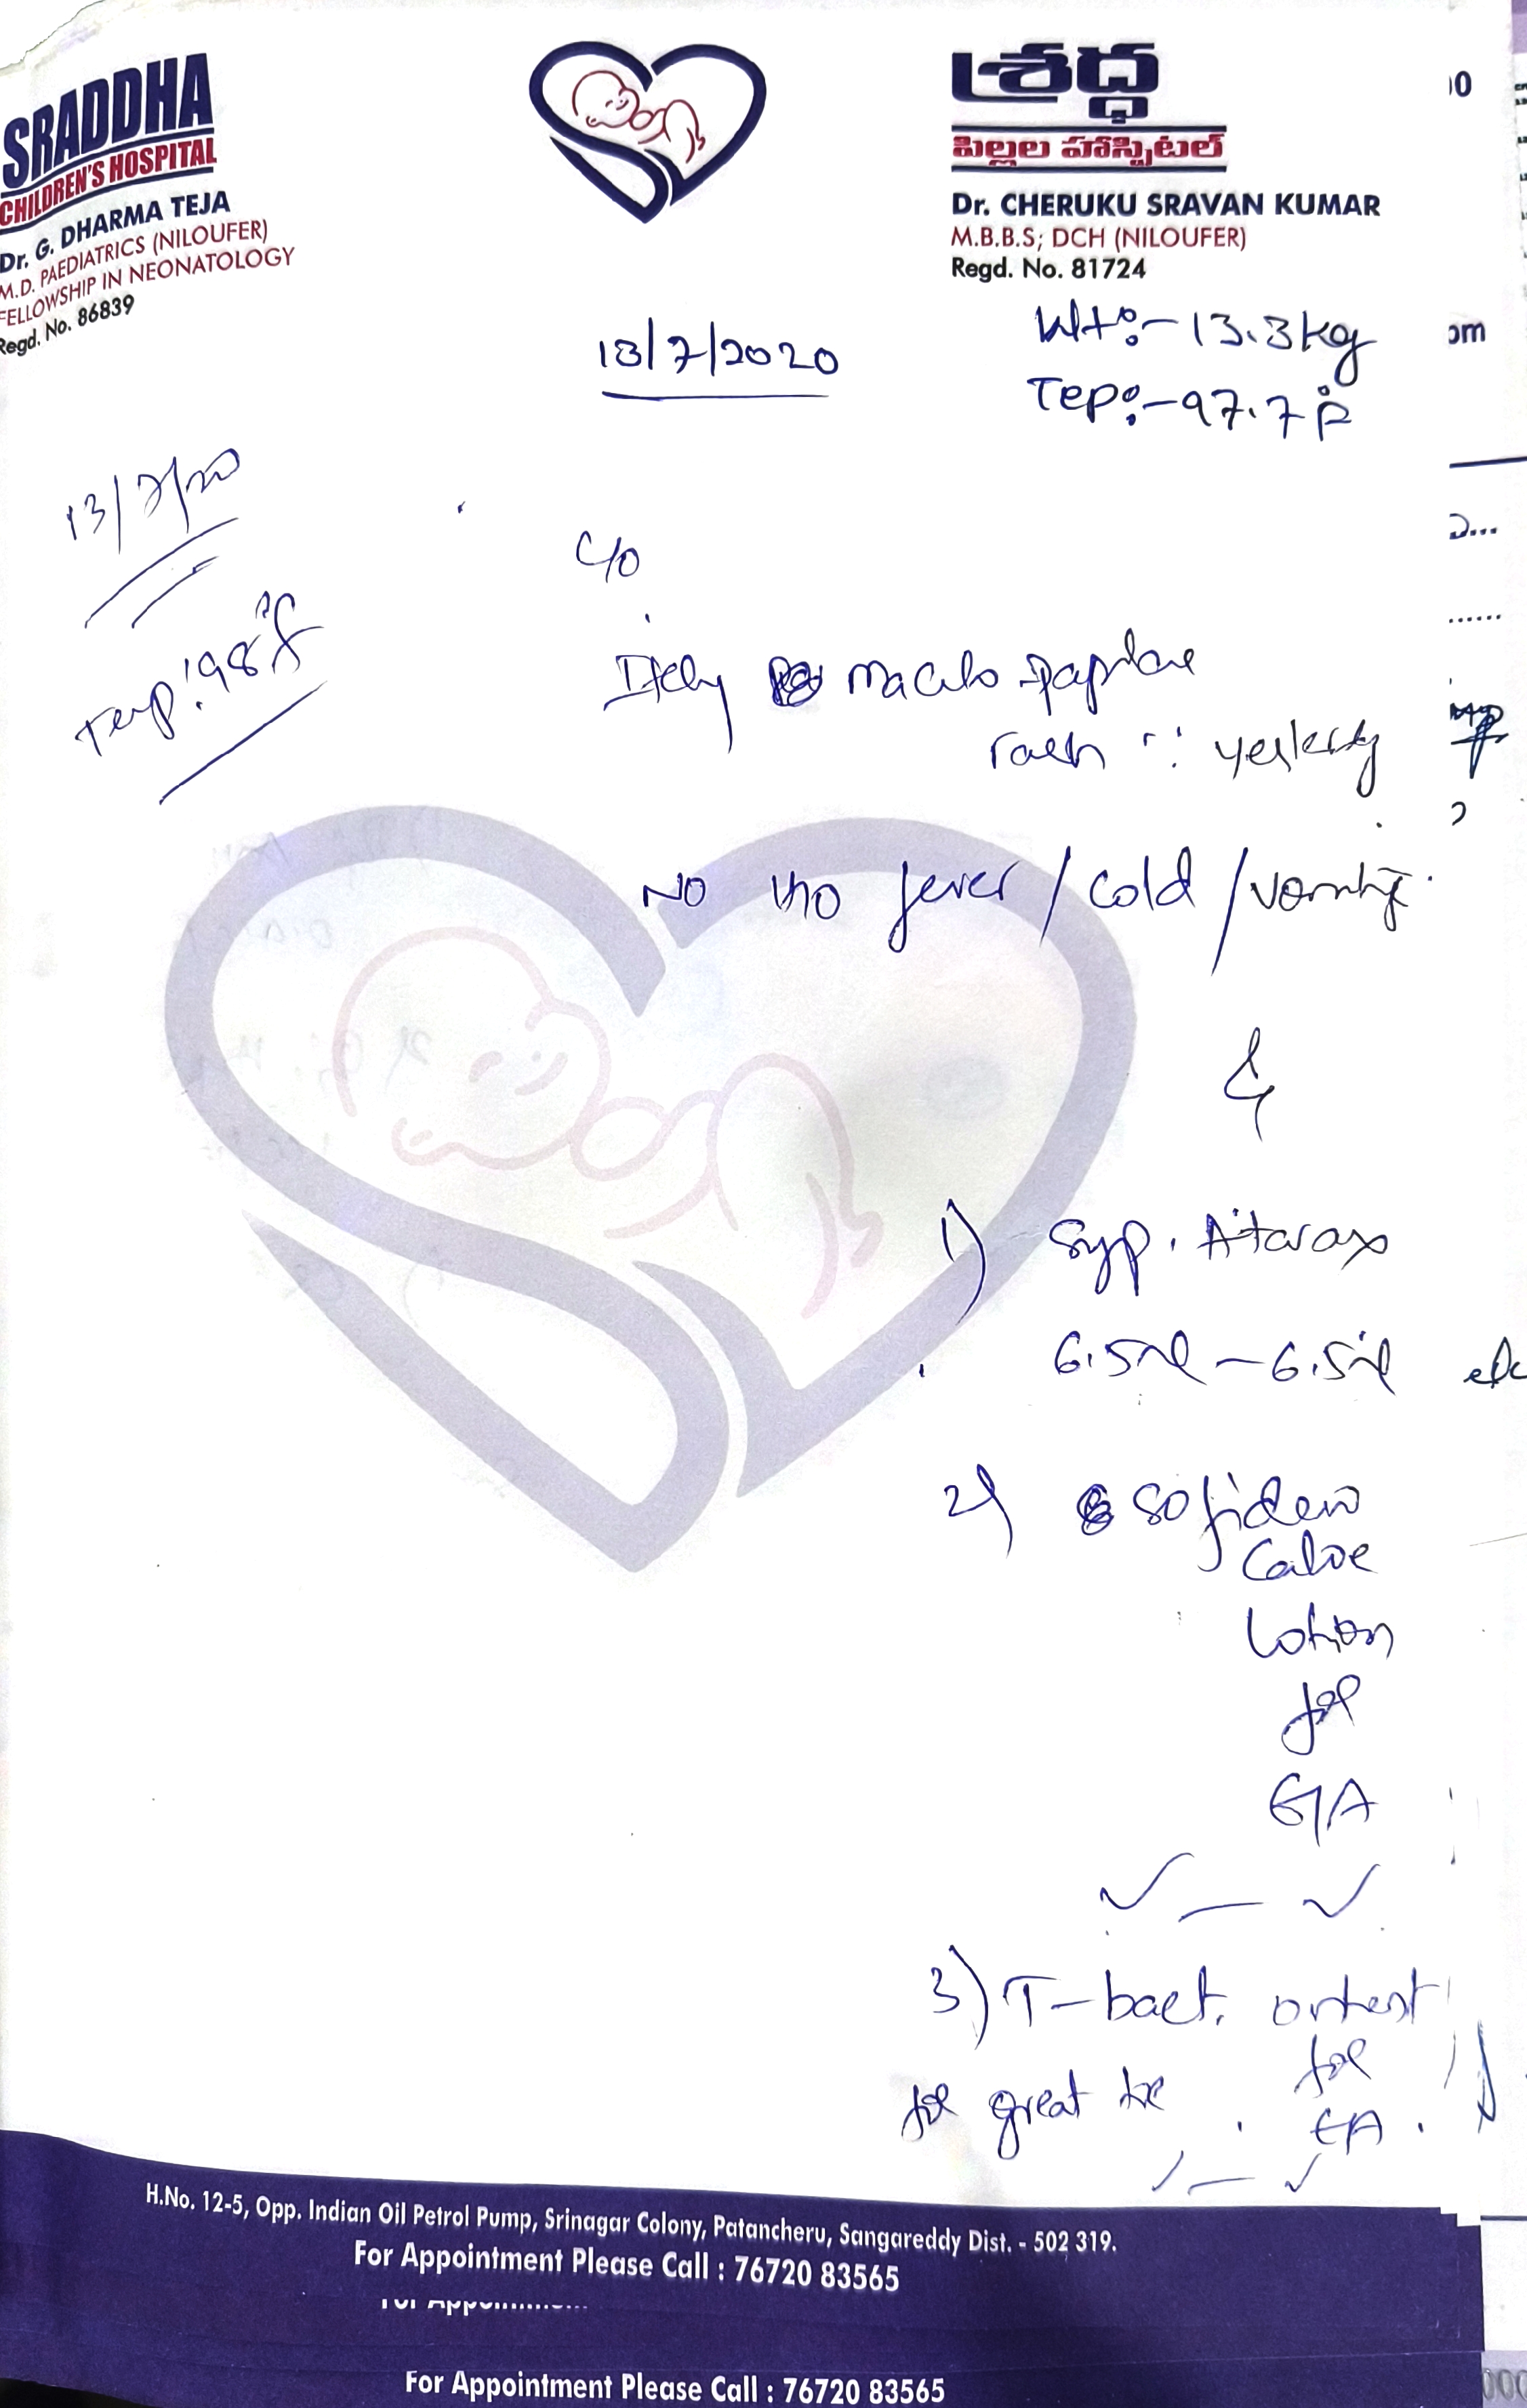 SRADDHA
CHILDREN'S HOSPITAL
Dr. G. DHARMA TEJA
M.D. PAEDIATRICS (NILOUFER)
FELLOWSHIP IN NEONATOLOGY
Regd. No. 86839
శ్రద్ధ
పిల్లల హాస్పిటల్
Dr. CHERUKU SRAVAN KUMAR
M.B.B.S; DCH (NILOUFER)
Regd. No. 81724
Wt:- 13.3kg
Tep:- 97.7°F
13/7/2020
13/7/20
Temp: 98°f
C/o
Itchy maculo papular
rash ∵ yesterday
No h/o fever / cold / vomiting
1) Syp. Atarax
6.5ml - 6.5ml
2) Sofidew
Calve
Lotion
for
E/A
✓ — ✓
3) T-bact. ointment
for
for great toe
E/A.
✓ — ✓
H.No. 12-5, Opp. Indian Oil Petrol Pump, Srinagar Colony, Patancheru, Sangareddy Dist. - 502 319.
For Appointment Please Call : 76720 83565
For Appointment Please Call : 76720 83565